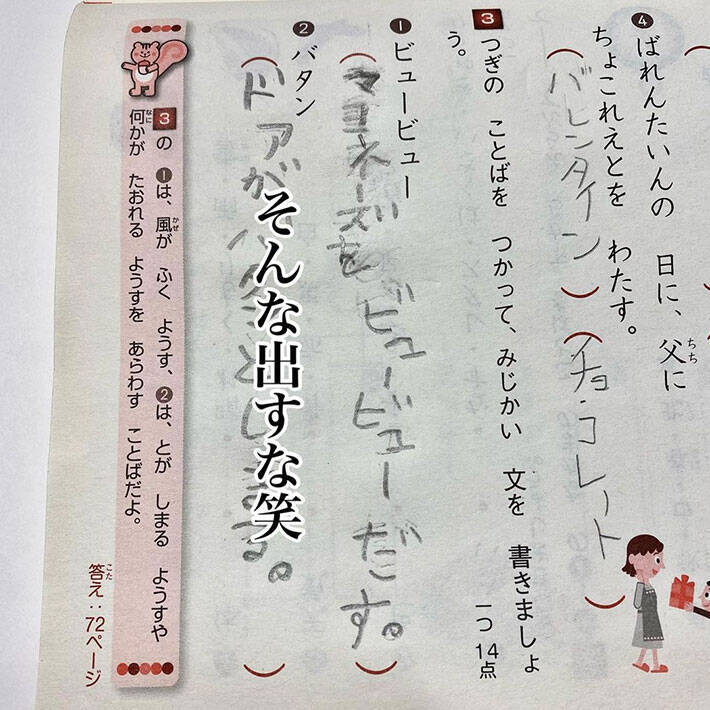 ❹ばれんたいんの 日に、父に
ちち
ちょこれえとを わたす。
(バレンタイン)(チョコレート)
3 つぎの ことばを つかって、みじかい 文を 書きましょ
う。
一つ 14点
❶ビュービュー
(マヨネーズをビュービューだす。)
❷バタン
(ドアがバタンとしまる。)
そんな出すな笑
3の ❶は、風が ふく ようす、❷は、とが しまる ようすや
かぜ
何かが たおれる ようすを あらわす ことばだよ。
なに
答え：72ページ
こた